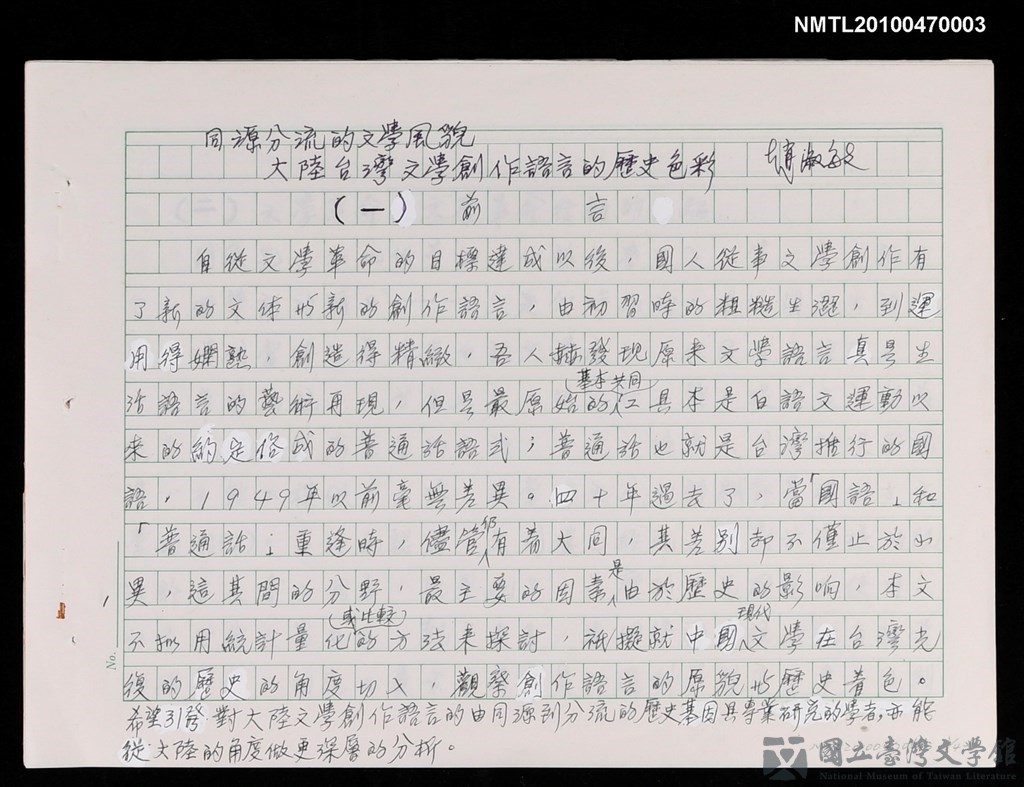 NMTL20100470003
同源分流的文學風貌
大陸台灣文學創作語言的歷史色彩 趙淑敏
(一) 前言
自從文學革命的目標達成以後，國人從事文學創作有
了新的文体與新的創作語言，由初習時的粗糙生澀，到運
用得嫻熟，創造得精緻，吾人赫發現原來文學語言真是生
基本共同
活語言的藝術再現，但是最原始的工具本是白話文運動以
來的約定俗成的普通話語式；普通話也就是台灣推行的國
語，1949年以前毫無差異。四十年過去了，當「國語」和
「普通話」重逢時，儘管仍有著大同，其差別卻不僅止於小
異，這其間的分野，最主要的因素是由於歷史的影响，本文
或比較 現代
不擬用統計量化的方法來探討，祇擬就中國文學在台灣光
復的歷史的角度切入，觀察創作語言的原貌與歷史着色。
希望引發對大陸文學創作語言的由同源到分流的歷史基因具專業研究的學者，亦能
從大陸的角度做更深層的分析。
No.
國立臺灣文學館
National Museum of Taiwan Literature